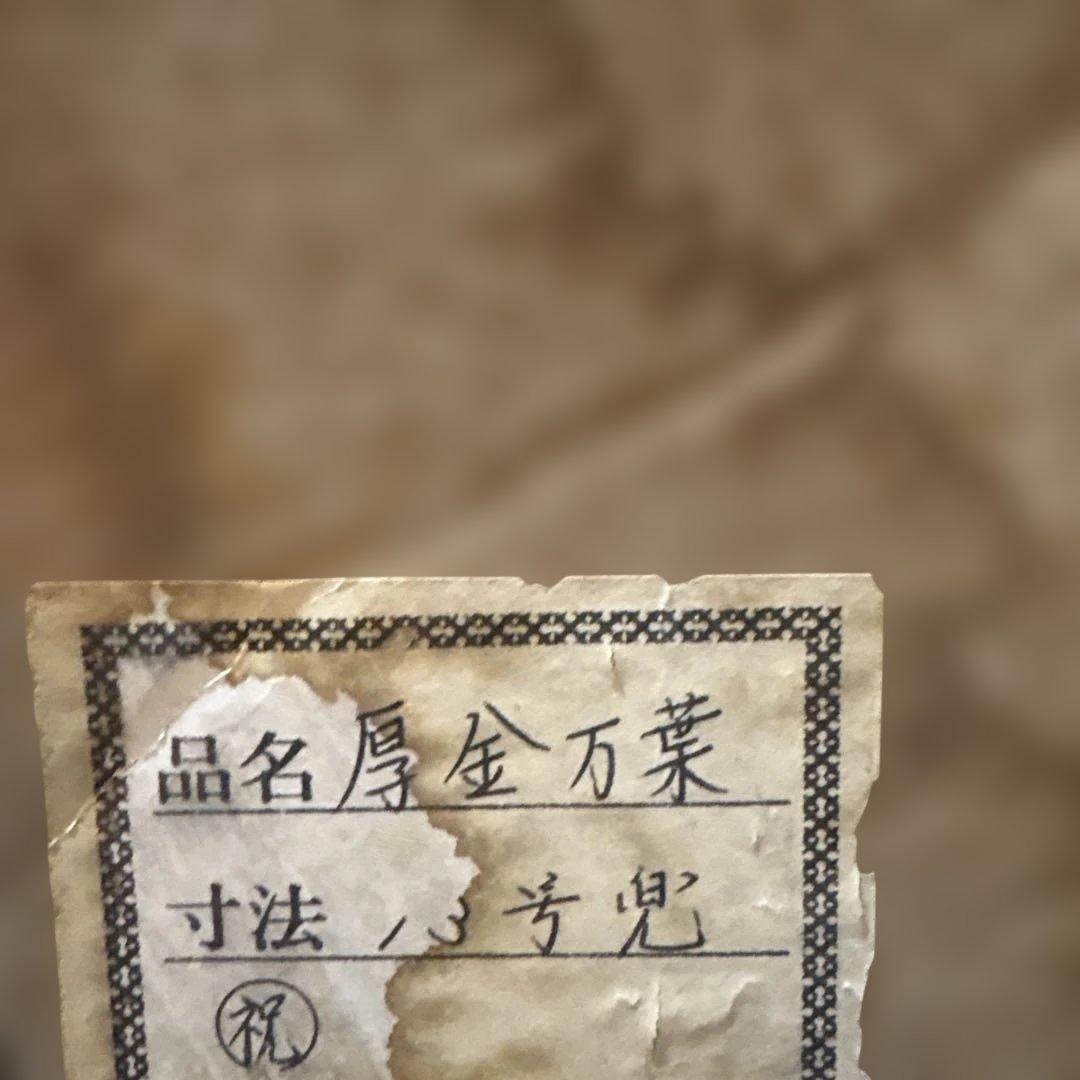 品名 厚金万葉
寸法 13号兜
㊗